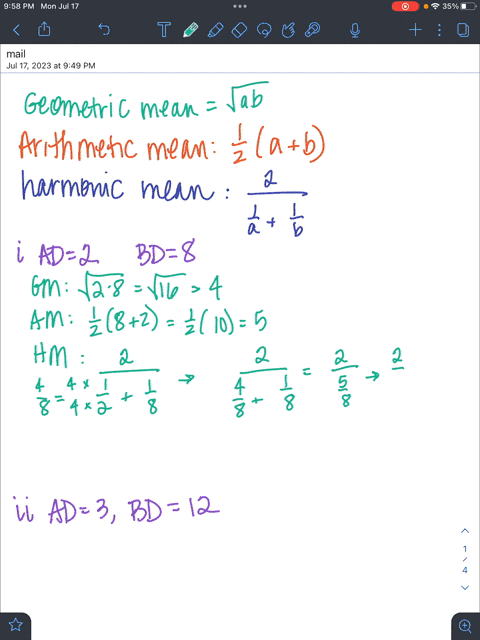 9:58 PM Mon Jul 17
35%
mail
Jul 17, 2023 at 9:49 PM
Geometric mean = √ab
Arithmetic mean: 1/2 (a+b)
harmonic mean : 2 / (1/a + 1/b)
i AD=2 BD=8
GM: √2·8 = √16 > 4
AM: 1/2 (8+2) = 1/2 (10) = 5
HM: 2 / (1/2 + 1/8) → 2 / (4/8 + 1/8) = 2 / (5/8) → 2
4/8 = 4×1 / 4×2
ii AD=3, BD=12
1
/
4